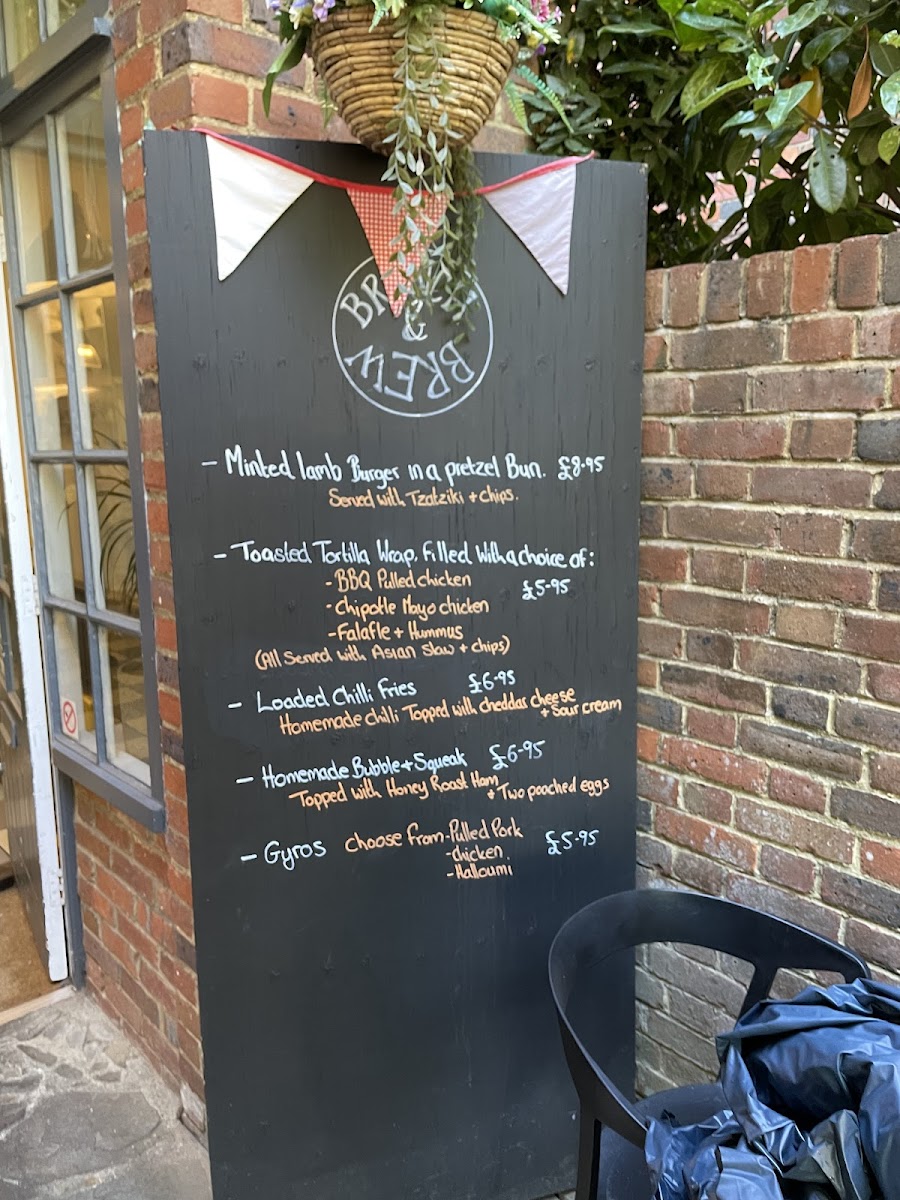 &
BREW
- Minted lamb Burger in a pretzel Bun. £8.95
Served with Tzatziki + chips.
- Toasted Tortilla Wrap, filled with a choice of:
- BBQ Pulled chicken £5-95
- Chipotle Mayo chicken
- Falafle + Hummus
(All Served with Asian Slaw + chips)
- Loaded Chilli Fries £6-95
Homemade chilli Topped with cheddas cheese
+ Sour cream
- Homemade Bubble + Squeak £6-95
Topped with Honey Roast Ham
+ Two pooched eggs
- Gyros Choose From - Pulled Pork £5-95
- chicken.
- Halloumi